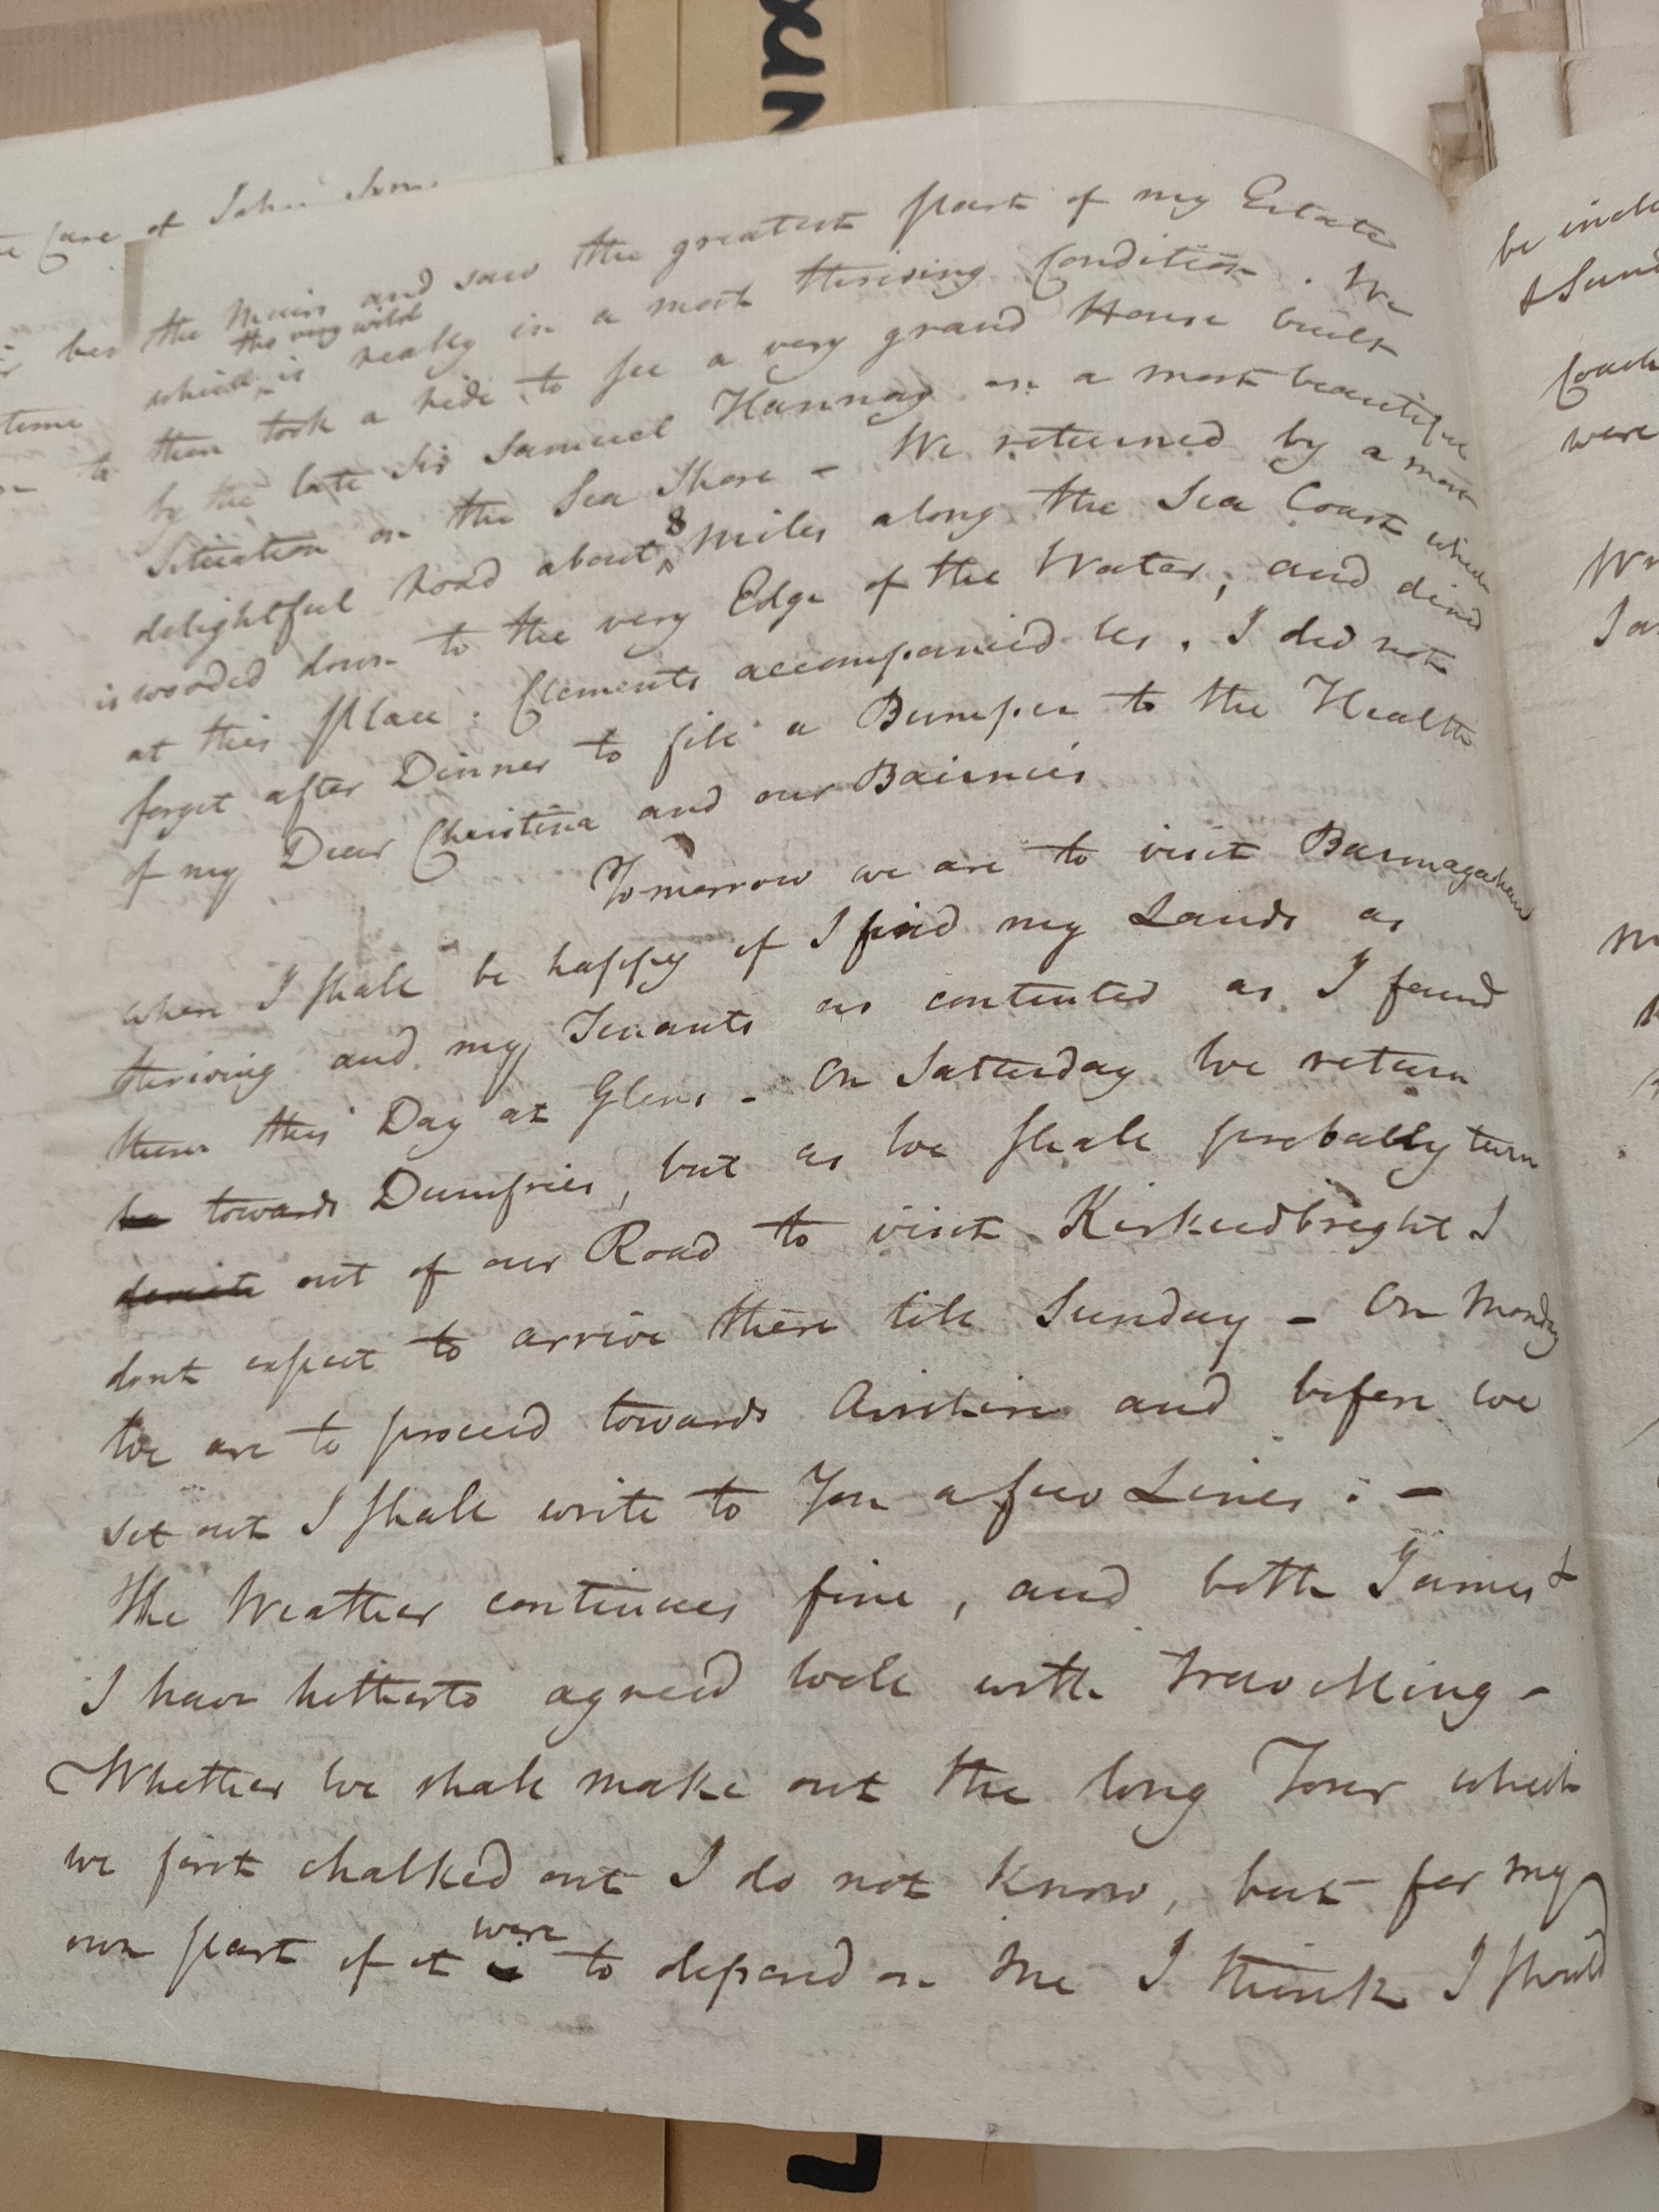 Care of John
the Muirs and saw the greatest part of my Estate
which tho very wild is really in a most thriving Condition. We
then took a ride to see a very grand House built
by the late Sir Samuel Hannay on a most beautiful
Situation on the Sea Shore - We returned by a most
delightful Road about 8 Miles along the Sea Coast which
is wooded down to the very Edge of the Water, and dined
at this place. Clements accompanied Us. I did not
forget after Dinner to fill a Bumper to the Health
of my Dear Christina and our Bairnies
Tomorrow we are to visit Barmagachan
where I shall be happy if I find my Lands as
thriving and my Tenants as contented as I found
them this Day at Glens - On Satturday We return
towards Dumfries, but as We shall probably turn
out of our Road to visit Kirkcudbright I
dont expect to arrive there till Sunday - On Monday
We are to proceed towards Airshire and before we
set out I shall write to You a few Lines: -
The Weather continues fine, and both James &
I have hitherto agreed well with travelling -
Whether We shall make out the long Tour which
we first chalked out I do not know, but for my
own part if it were to depend on me I think I should
be
&
Coach
were